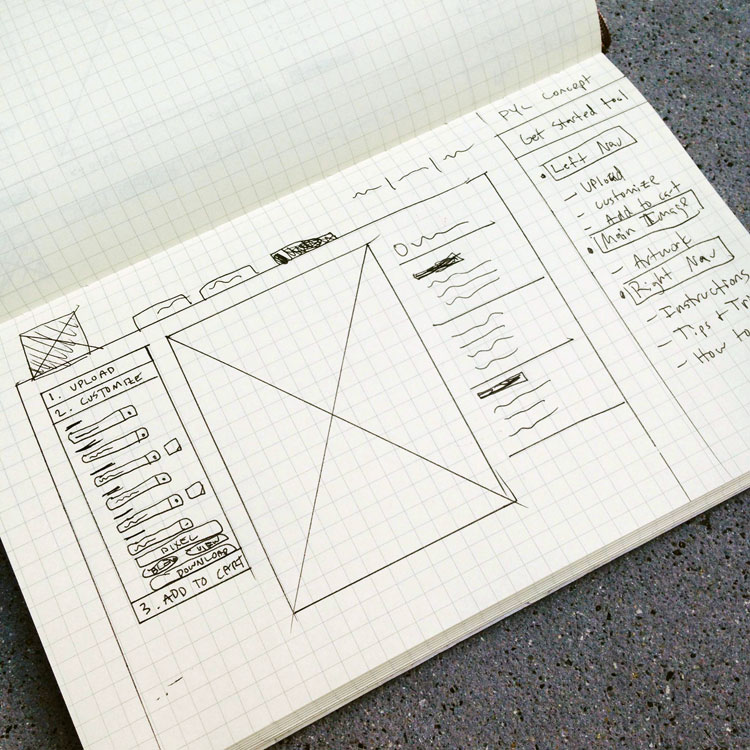 1. UPLOAD
2. CUSTOMIZE
PIXEL
VIEW
DOWNLOAD
3. ADD TO CART
PYL Concept
Get Started tool
Left Nav
- Upload
- Customize
- Add to cart
Main Image
- Artwork
Right Nav
- Instructions
- Tips +
- How to